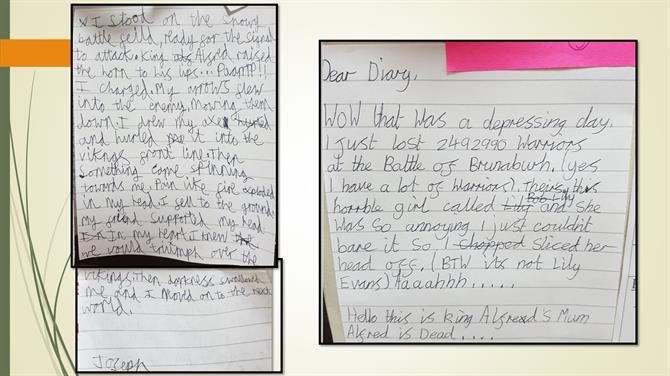 I stood on the snowy
battle feild, ready for the signal
to attack. King Alfred raised
the horn to his lips... PaarrP!!
I charged. My arrows flew
into the enemy, mowing them
down. I drew my axe
and hurled it into the
vikings front line. Then
Something came spinning
towards me. Pain like fire exploded
in my head. I fell to the ground.
my friend supported my head
In my heart I knew
we would triumph over the
vikings. Then darkness swallowed
me and I moved on to the next
world.
Joseph
Dear Diary,
WOW that was a depressing day.
I just lost 2492990 Warriors
at the Battle of Brunaburh. (yes
I have a lot of Warriors). Theirs this
horrble girl called Lily Bob Lily and She
was so annoying I just couldn't
bare it So I chopped sliced her
head off. (BTW its not Lily
Evans) Aaaahhh.....
Hello this is king Alfred's Mum
Alfred is Dead....